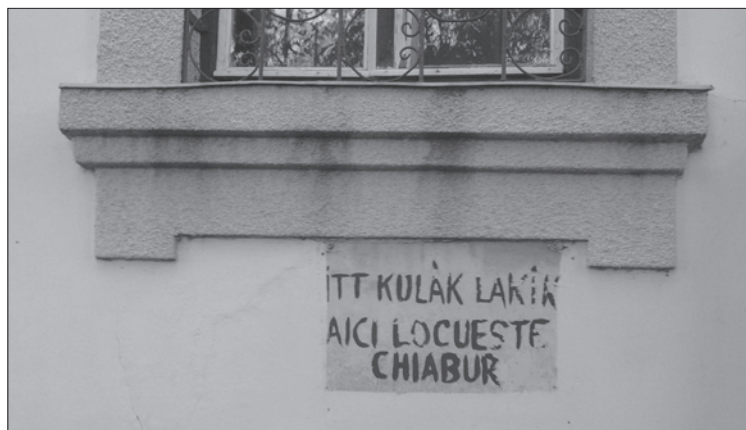 ITT KULÁK LAKIK
AICI LOCUEȘTE
CHIABUR